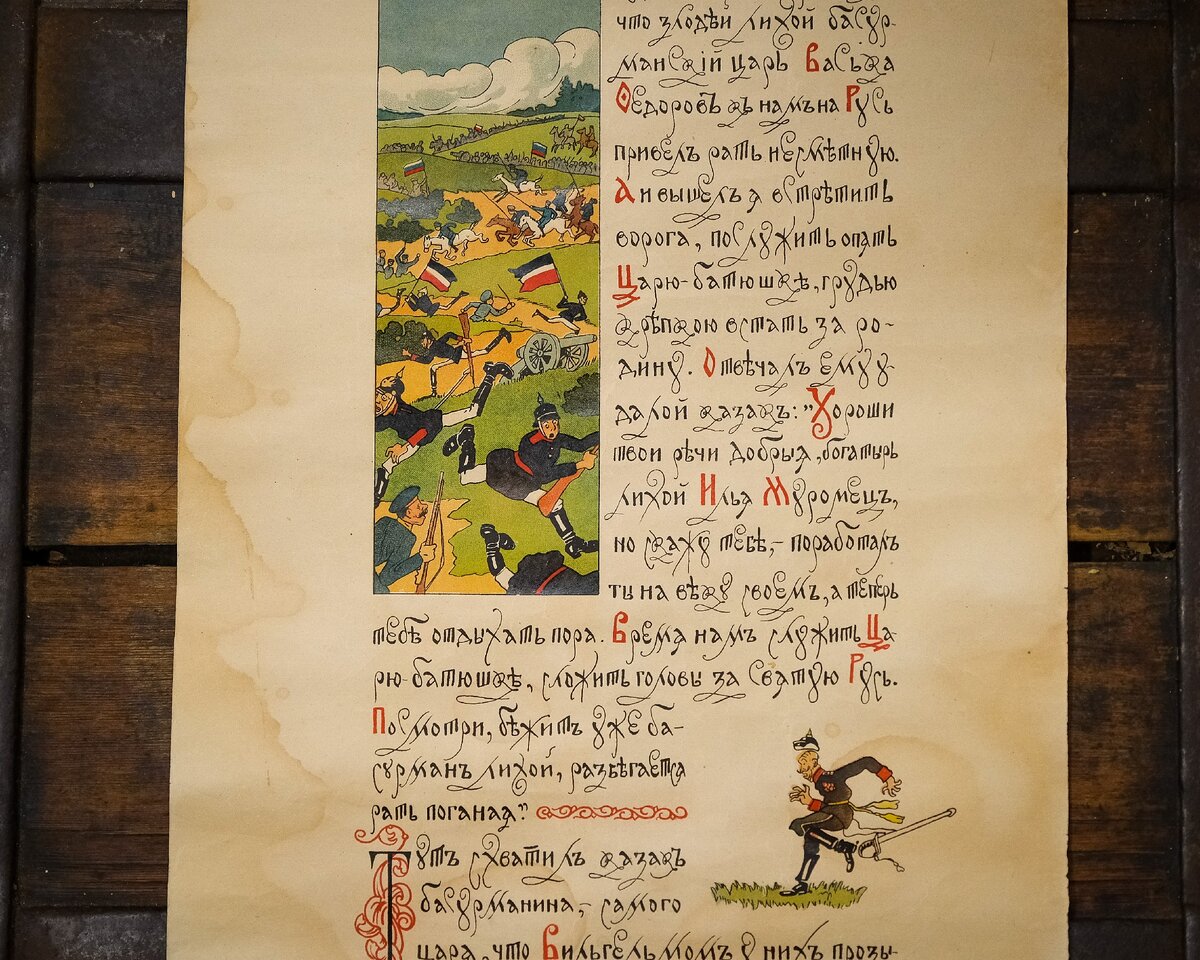 что злодѣи лихой басур-
манскій царь Васька
Ѳедоровъ къ намъ на Русь
привелъ рать несмѣтную.
А и вышелъ я встрѣтить
ворога, послужить опять
Царю-батюшкѣ, грудью
крѣпкою встать за ро-
дину. Отвѣчалъ ему у-
далой казакъ: "Хороши
твои рѣчи добрыя, богатырь
лихой Илья Муромецъ,
но скажу тебѣ,- поработалъ
ты на вѣку своемъ, а теперь
тебѣ отдыхать пора. Время намъ служить Ца
рю-батюшкѣ, сложить головы за Святую Русь.
Посмотри, бѣжитъ уже ба-
сурманъ лихой, разбѣгается
рать поганая".
Тутъ схватилъ казакъ
басурманина,- самого
царя, что Вильгельмомъ у нихъ прозы-